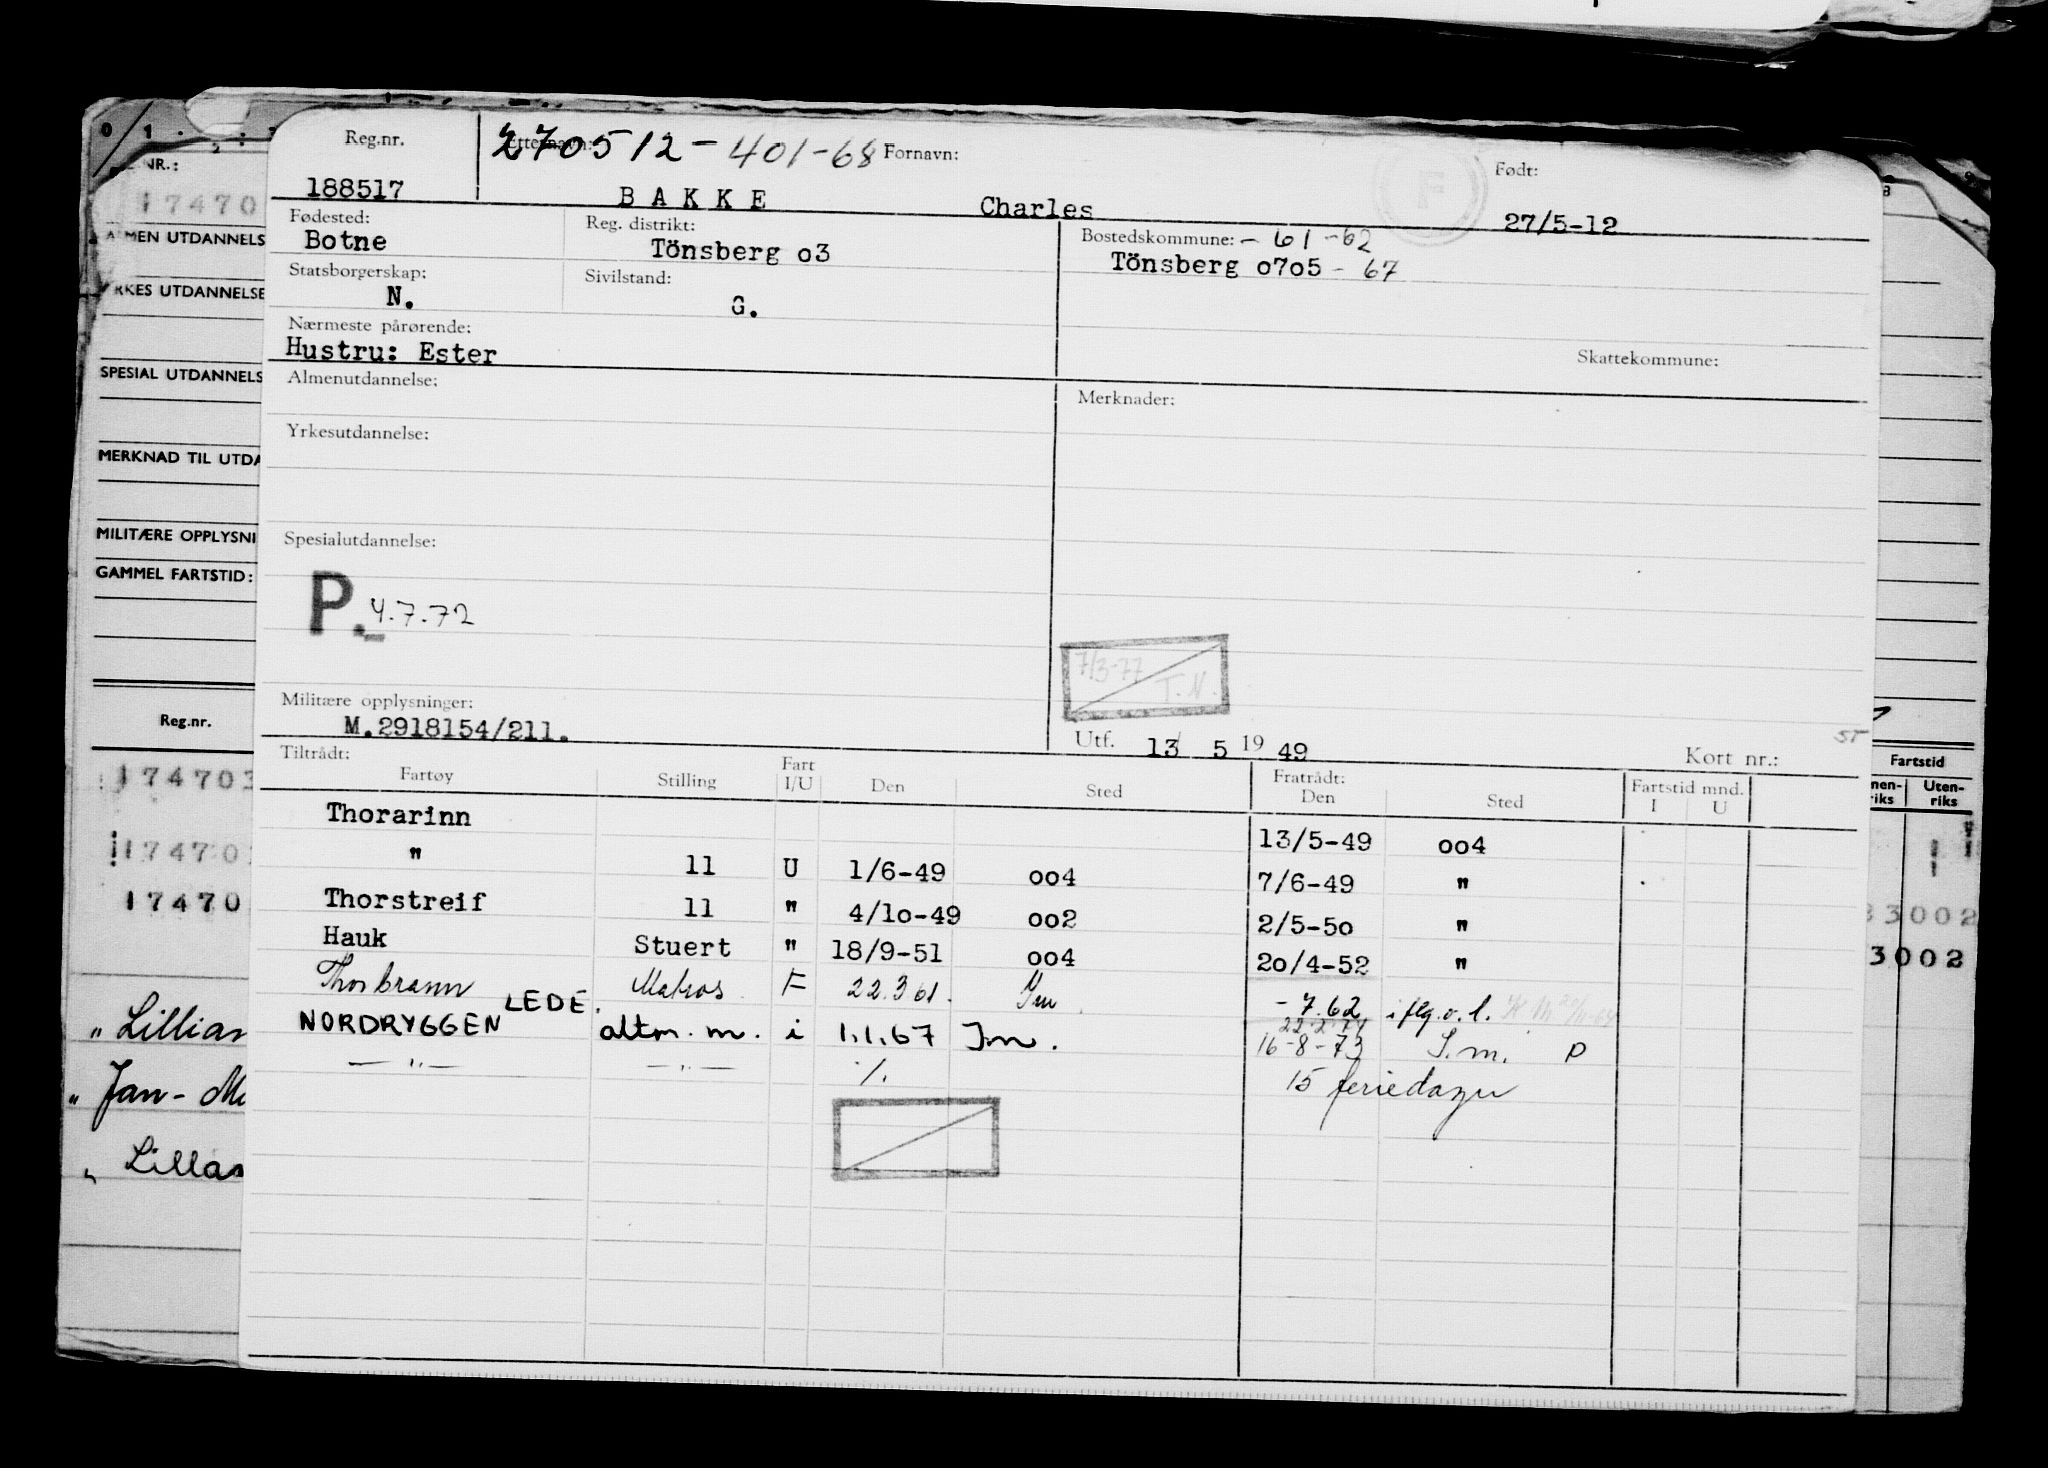 Reg.nr. Etternavn: 270512-401-68 Fornavn: Født:
188517 BAKKE Charles 27/5-12
Fødested: Reg. distrikt: Bostedskommune: - 61-62
Botne Tönsberg o3 Tönsberg o7o5 - 67
Statsborgerskap: Sivilstand:
N. G.
Nærmeste pårørende:
Hustru: Ester Skattekommune:
Almenutdannelse: Merknader:
Yrkesutdannelse:
Spesialutdannelse:
P. 4.7.72
7/3-77 T.N.
Militære opplysninger:
M.2918154/211.
Utf. 13/ 5 19 49 Kort nr.: ST
Tiltrådt: Fratrådt:
Fartøy Stilling Fart I/U Den Sted Den Sted Fartstid mnd. I U
Thorarinn 13/5-49 oo4
" 11 U 1/6-49 oo4 7/6-49 "
Thorstreif 11 " 4/1o-49 oo2 2/5-5o "
Hauk Stuert " 18/9-51 oo4 2o/4-52 "
Thorbrann Matros F 22.3 61. Sm - 7.62 i flg.o.l.
NORDRYGGEN LEDE. altm. m. i 1.1.67 Sm. 22-2-71
16-8-73 S.m. P
— " — — " — ./. 15 feriedager
0 1 2
NR.:
17470
ALMEN UTDANNELS
YRKES UTDANNELSE
SPESIAL UTDANNELS
MERKNAD TIL UTDA
MILITÆRE OPPLYSNI
GAMMEL FARTSTID:
Reg.nr.
174703
174703
17470
" Lillian
" Jan-
" Lillan
Fartstid
nen-riks Uten-riks
33002
3002